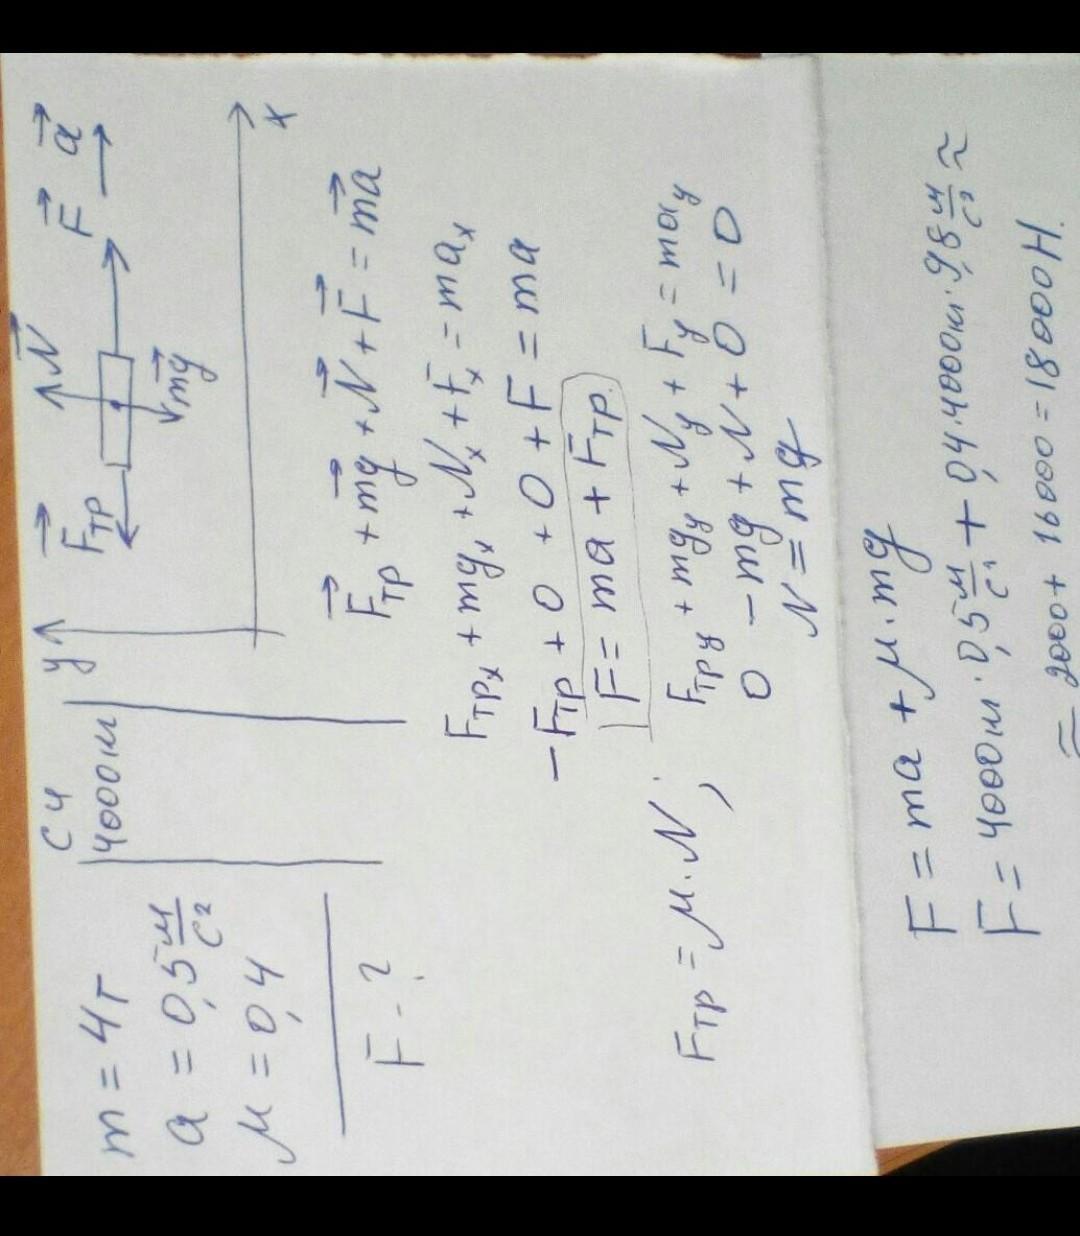 m = 4т
a = 0,5 м/с²
μ = 0,4
F - ?
СИ
4000кг
y
F⃗тр N⃗ F⃗ a⃗
mg⃗
x
F⃗тр + mg⃗ + N⃗ + F⃗ = ma⃗
Fтрx + mgx + Nx + Fx = max
-Fтр + 0 + 0 + F = ma
F = ma + Fтр
Fтр = μ·N ;
Fтрy + mgy + Ny + Fy = may
0 - mg + N + 0 = 0
N = mg
F = ma + μ·mg
F = 4000кг · 0,5 м/с² + 0,4·4000кг·9,8 м/с² ≈
≅ 2000 + 16000 = 18000Н.